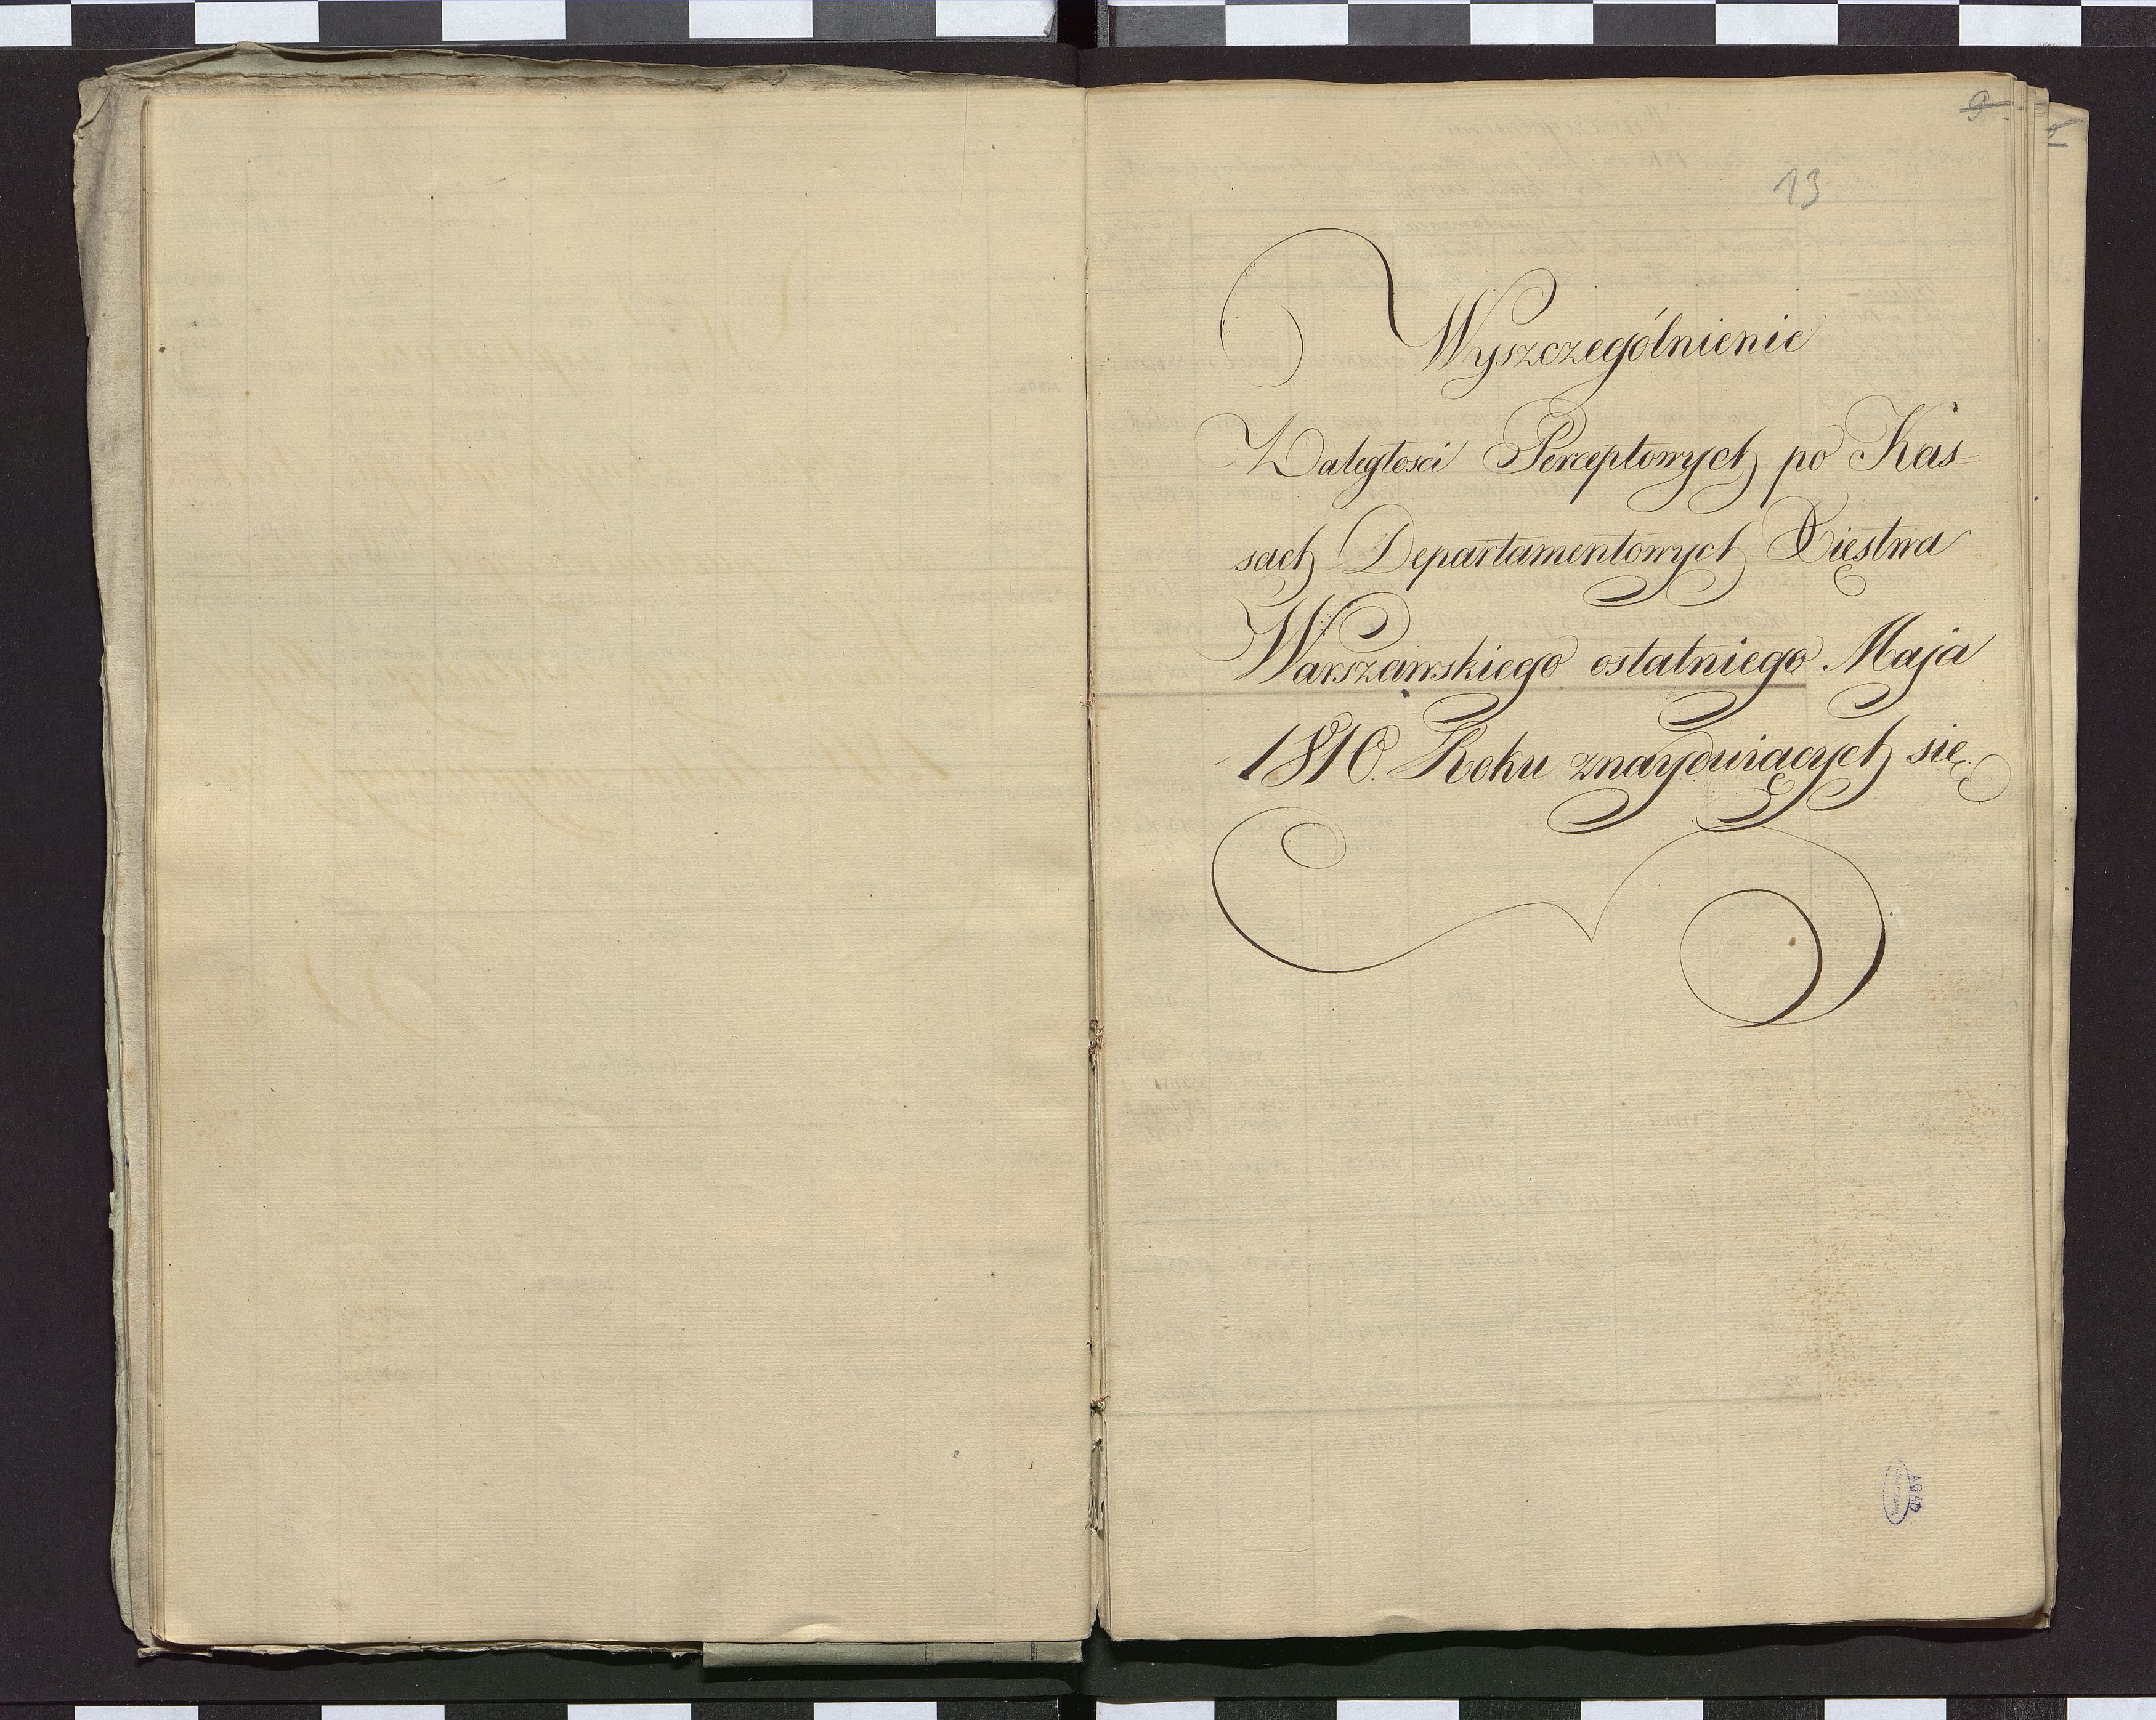 9
13
Wyszczególnienie
Zaległosci Perceptowych po Kas-
sach Departamentowych Xięstwa
Warszawskiego ostatniego Maja
1810. Roku znayduiących się.
AGAD